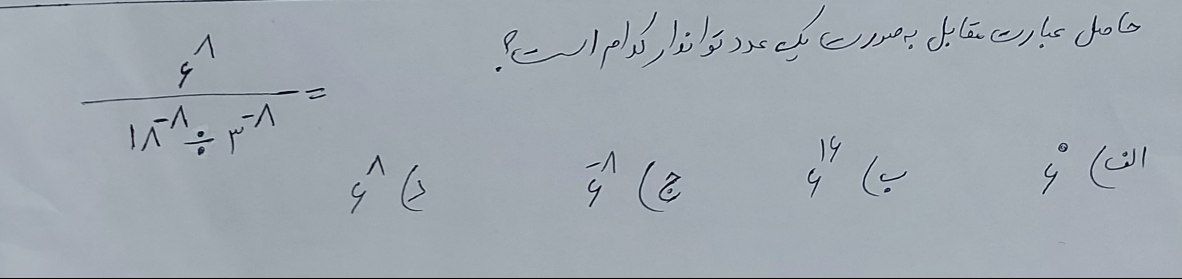 حاصل عبارت مقابل به صورت یک عدد تواندار کدام است؟
۶^۸ / (۱۸^-۸ ÷ ۳^-۸) =
الف) ۶^۰ ب) ۶^۱۶ ج) ۶^-۸ د) ۶^۸